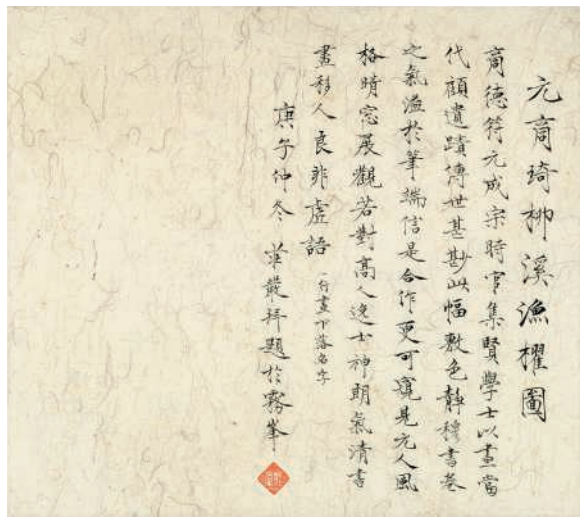 元商琦柳溪漁櫂圖
商德符元成宗時官集賢學士以畫當
代顧遺蹟傳世甚尠此幅敷色靜穆書卷
之氣溢於筆端信是合作更可窺見元人風
格晴窓展觀若對高人逸士神朗氣清書
畫移人良非虛語 一行畫下落名字
庚午仲冬 莊嚴拜題於霧峯